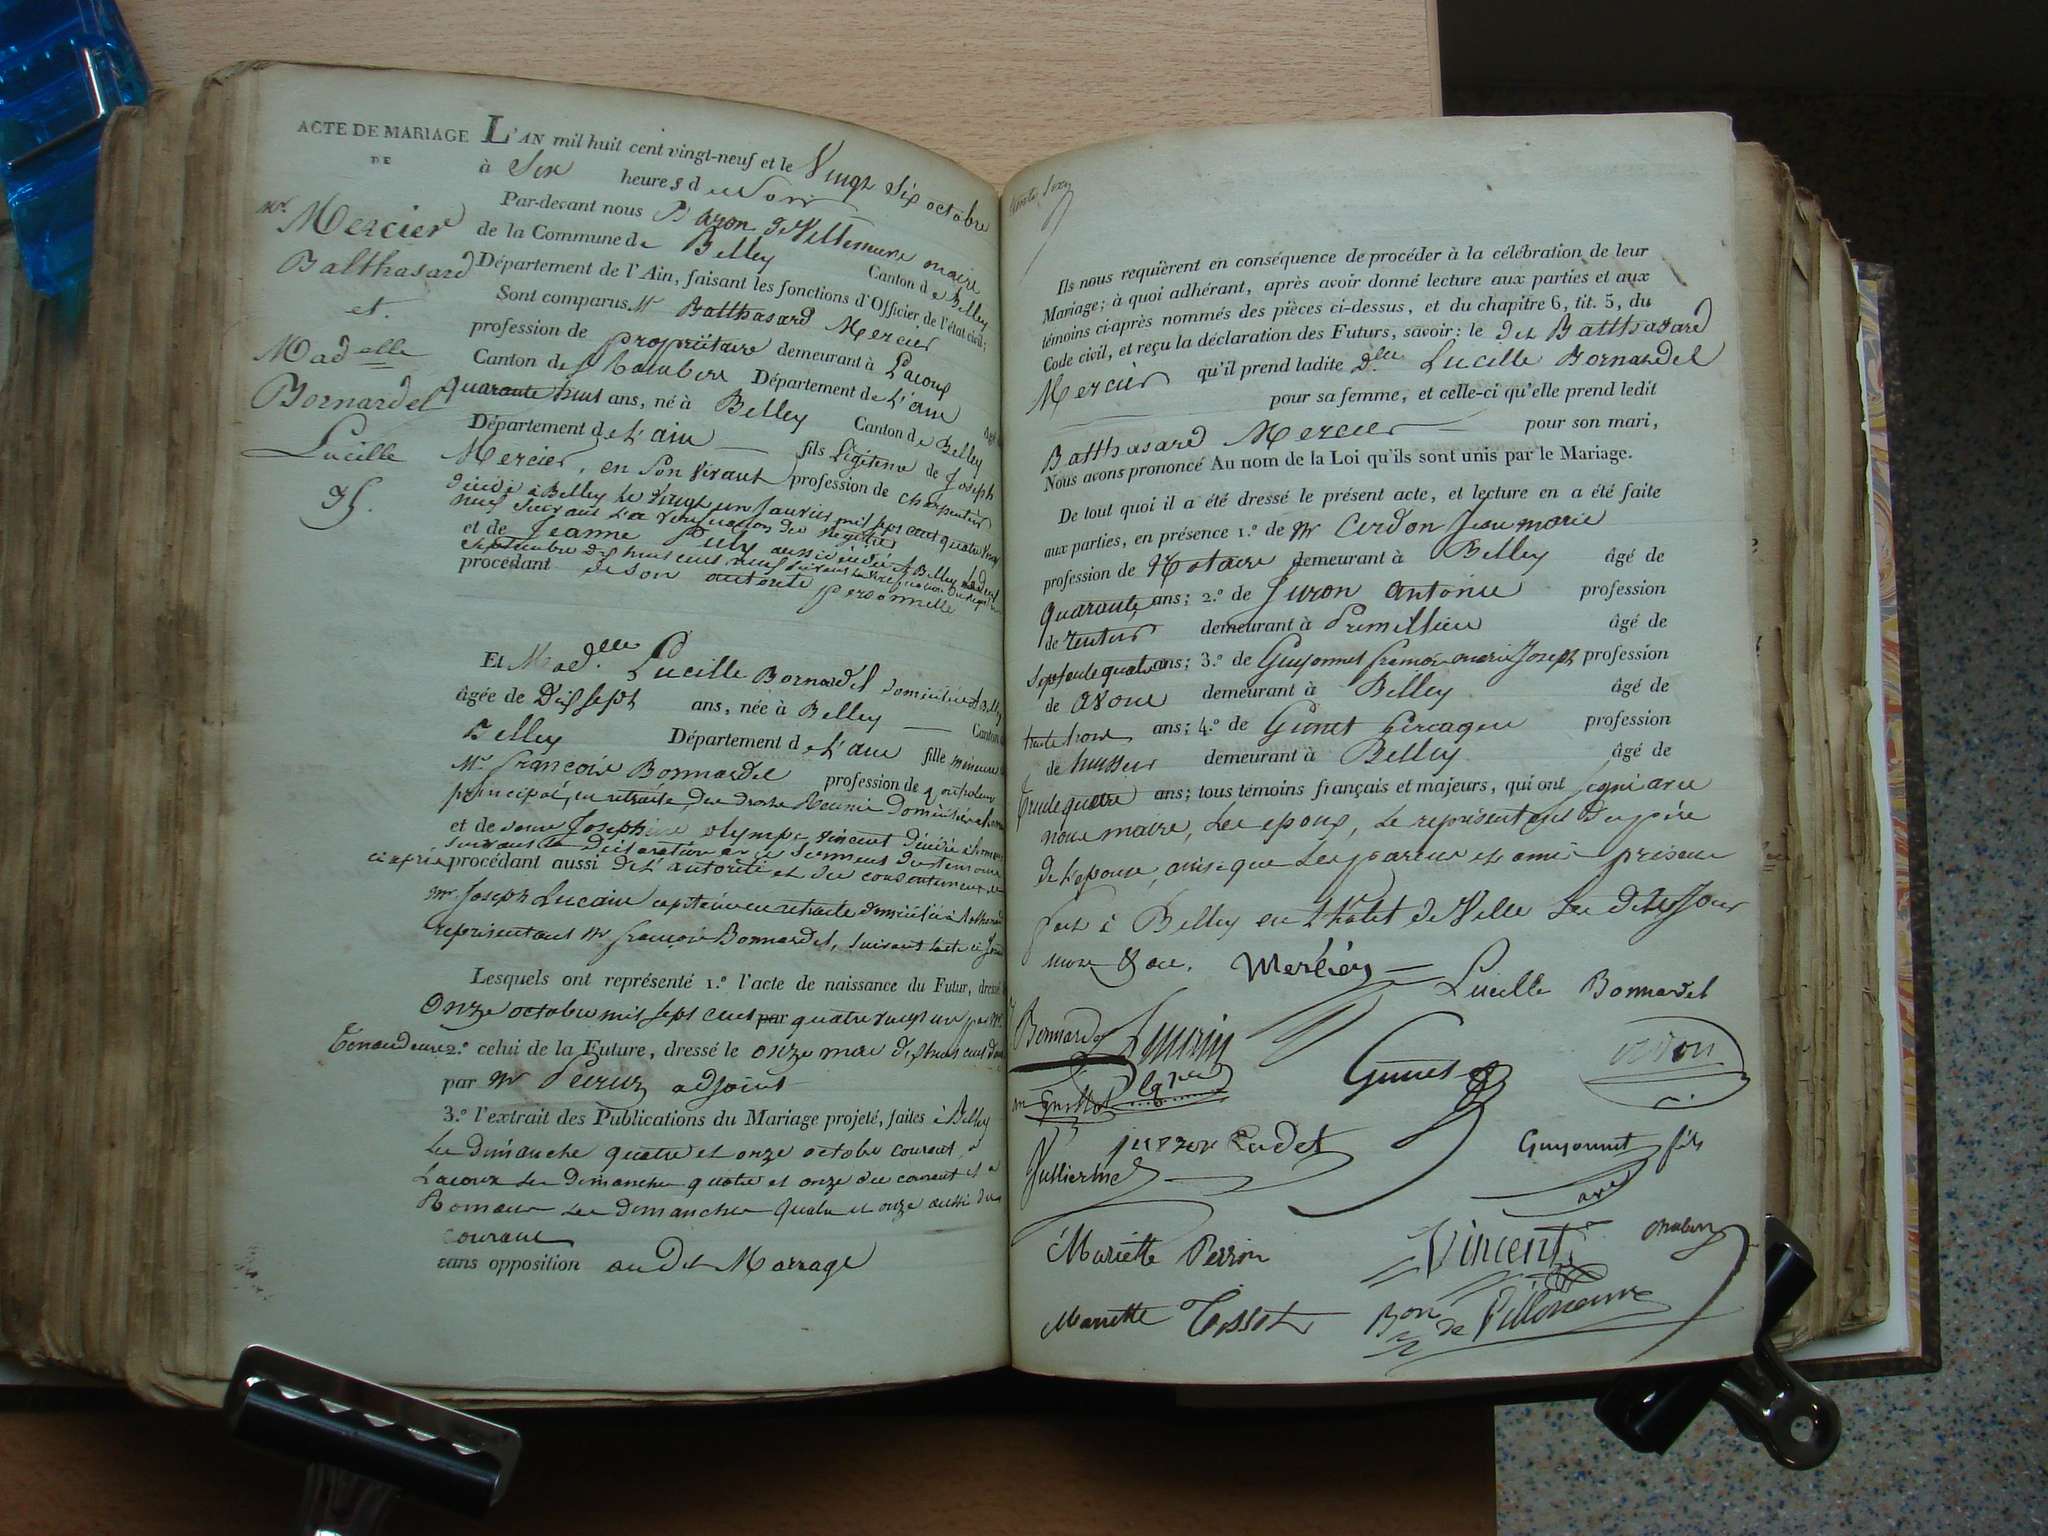 ACTE DE MARIAGE
DE
Mr. Mercier
Balthasard
et
Madelle
Bornardel
Lucille
L'AN mil huit cent vingt-neuf et le Vingt Six octobre
à Six heures du Soir
Par-devant nous Baron de Villeneuve maire
de la Commune de Belley Canton de Belley
Département de l'Ain, faisant les fonctions d'Officier de l'état civil;
Sont comparus Mr Balthasard Mercier
profession de propriétaire demeurant à Lacoux
Canton de Département de L'ain âgé
quarante huit ans, né à Belley Canton de Belley
Département de L'ain fils Légitime de Joseph
Mercier, en Son vivant profession de charpentier
décédé à Belley le Vingt un Janvier mil sept cent quatre vingt
neuf Suivant
et de Jeanne aussi décédée à Belley
Septembre dix huit cent neuf
procédant de son autorité personnelle
Et Madelle Lucille Bornardel domiciliée à Belley
âgée de Dix sept ans, née à Belley Canton
Belley Département de L'ain fille mineure
Mr. françois Bonnardel profession de
principal, en retraite, des droits Reunis Domicilié
et de dame Josephine olympe vincent décédée
Suivant la déclaration avec Serment des temoins
ci après procédant aussi de L'autorité et du consentement de
mr. Joseph Lucain capitaine en retraite domicilié à
représentant mr françois Bonnardel, Suivant
Lesquels ont représenté 1.º l'acte de naissance du Futur, dressé
Onze octobre mil sept cent par quatre vingt un
2.º celui de la Future, dressé le onze mai dix huit cent
par mr adjoint
3.º l'extrait des Publications du Mariage projeté, faites à Belley
les dimanche quatre et onze octobre courant, à
Lacoux les dimanche quatre et onze du courant et à
les dimanches quatre et onze aussi du
courant
sans opposition au dit Mariage
Ils nous requièrent en conséquence de procéder à la célébration de leur
Mariage; à quoi adhérant, après avoir donné lecture aux parties et aux
témoins ci-après nommés des pièces ci-dessus, et du chapitre 6, tit. 5, du
Code civil, et reçu la déclaration des Futurs, savoir: le dit Balthasard
Mercier qu'il prend ladite dlle Lucille Bornardel
pour sa femme, et celle-ci qu'elle prend ledit
Balthasard Mercier pour son mari,
Nous avons prononcé Au nom de la Loi qu'ils sont unis par le Mariage.
De tout quoi il a été dressé le présent acte, et lecture en a été faite
aux parties, en présence 1.º de mr Cerdon Jean marie
profession de Notaire demeurant à Belley âgé de
quarante ans; 2.º de Juron antoine profession
de rentier demeurant à Premillieu âgé de
ans; 3.º de Guyonnet françois marie Joseph profession
de avoué demeurant à Belley âgé de
trente trois ans; 4.º de profession
de huissier demeurant à Belley âgé de
trente quatre ans; tous témoins français et majeurs, qui ont signé avec
nous maire, Les epoux, Le représentant du père
de L'epouse, ainsi que Les parens et amis présens
fait à Belley en L'hotel de Ville Les dits Jour
mois & an. Mercier
Lucille Bonnardel
Guyonnet fils
Mariette Perrin
Vincent
Mariette Tissot
Bon de Villeneuve